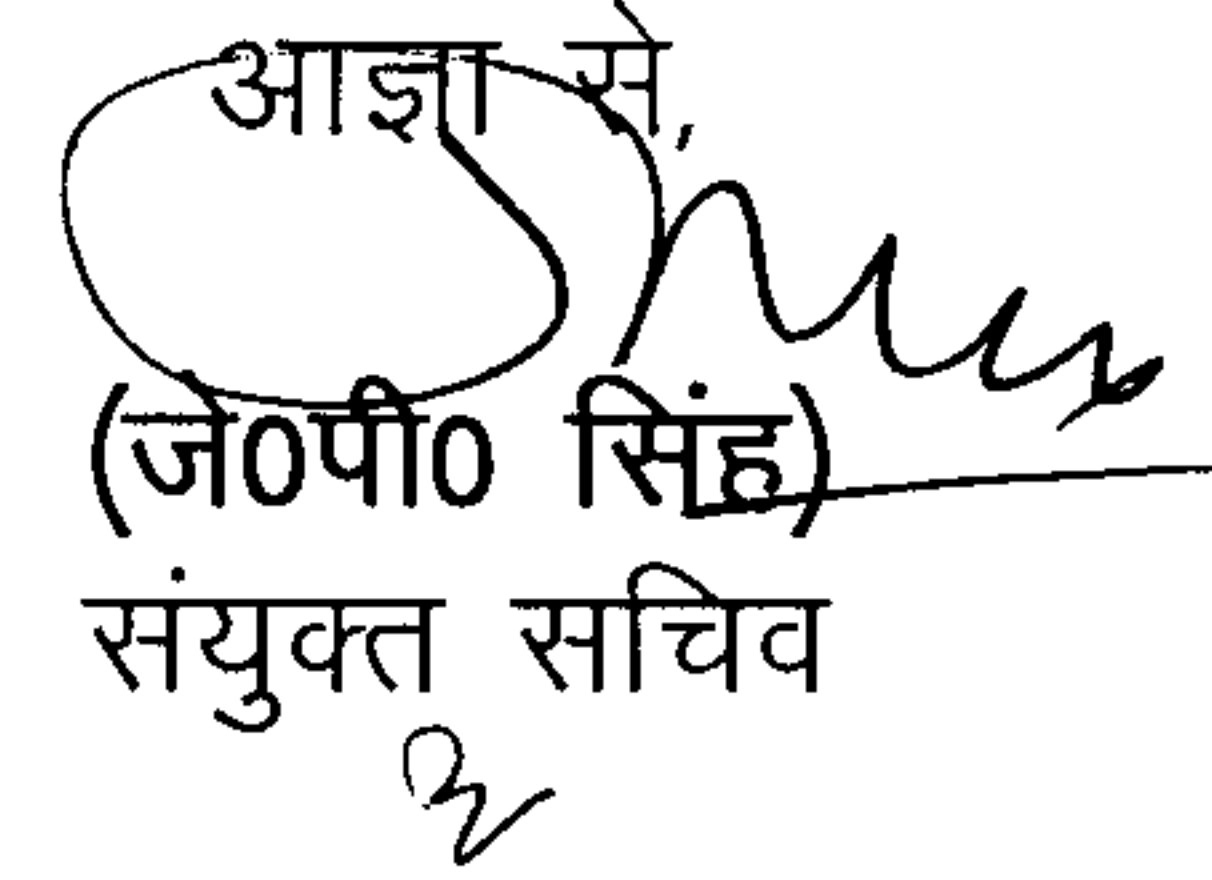 आज्ञा से,
(जे0पी0 सिंह)
संयुक्त सचिव